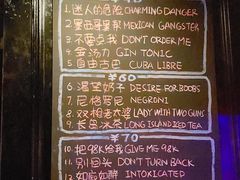 1. 迷人的危险 CHARMING DANGER
2. 墨西哥黑帮 MEXICAN GANGSTER
3. 不要点我 DON'T ORDER ME
4. 金汤力 GIN TONIC
5. 自由古巴 CUBA LIBRE
¥60
6. 渴望奶子 DESIRE FOR BOOBS
7. 尼格罗尼 NEGRONI
8. 双枪老太婆 LADY WITH TWO GUNS
9. 长岛冰茶 LONG ISLAND ICED TEA
¥70
10. 把98K给我 GIVE ME 98K
11. 别回头 DON'T TURN BACK
12. 如痴如醉 INTOXICATED